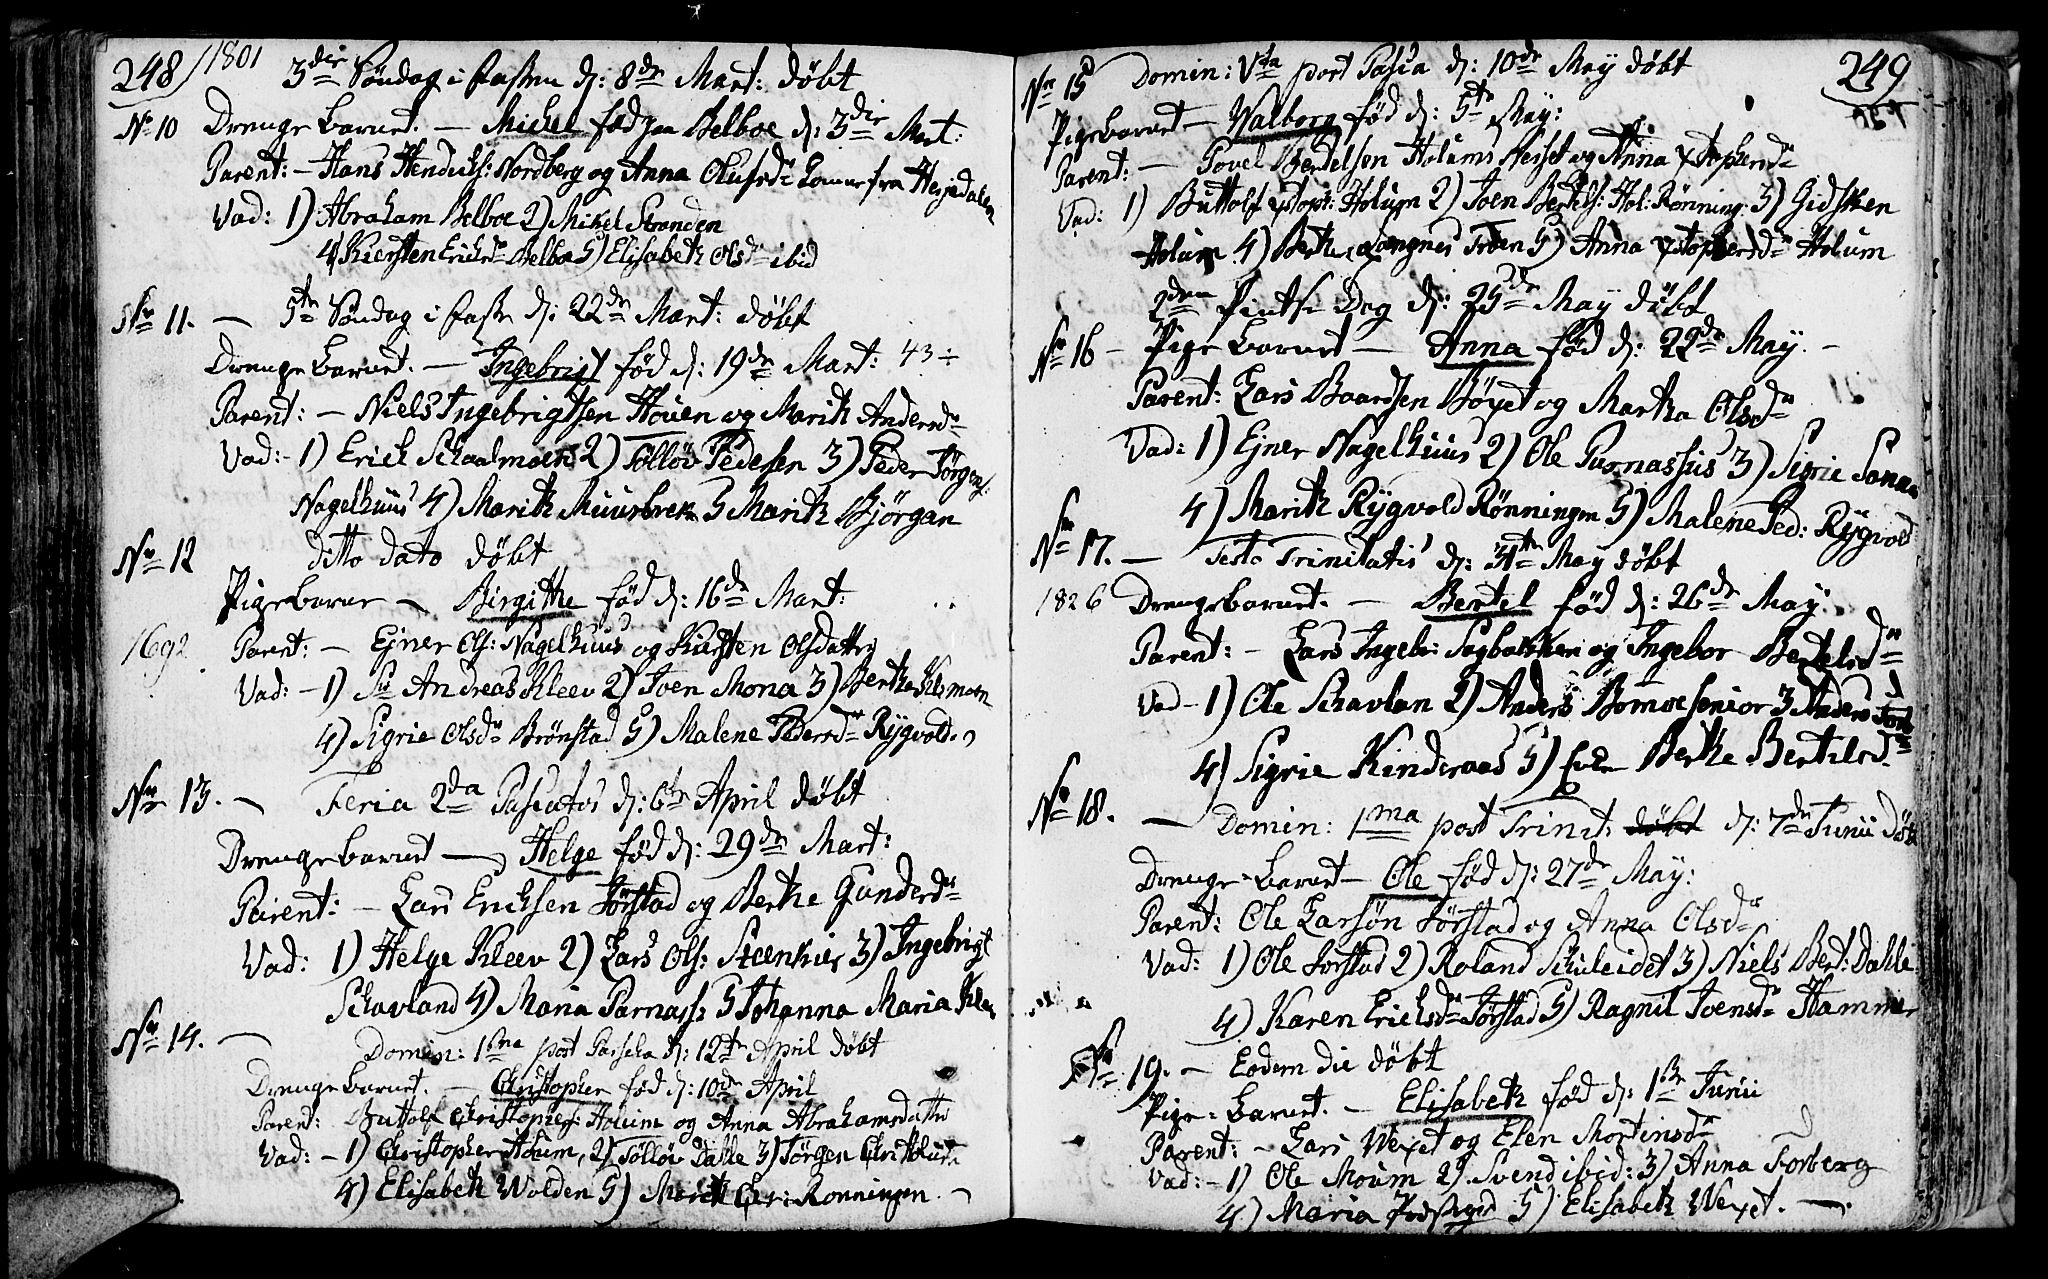 248/1801
3die Søndag i Fasten d: 8de Mart: døbt
No 10 Drenge barnet. — Michel fød paa Belboe d: 3die Mart:
Parent: — Hans Hendrichs: Nordberg og Anna Olufsd: komne fra Herjedalen
Vad: 1) Abraham Belboe 2) Mikel Stranden
4) Kiersten Ericksd: Belboe 5) Elisabeth Olsd: ibid
No 11. — 5te Søndag i Faste d: 22de Mart: døbt
Drenge barnet. — Ingebrigt fød d: 19de Mart: 43 ÷
Parent: — Niels Ingebrigtsen Houen og Marith Andersd:
Vad: - 1) Erick Schaalmoen 2) Tølløv Pedersen 3) Peder Jörgens:
Nagelhuus 4) Marith Muurbrek 5 Marith Bjørgan
No 12 ditto dato døbt
Pigebarnet — Birgithe fød d: 16de Mart:
1692 Parent: — Ejner Ols: Nagelhuus og Kiersten Olsdatter
Vad: — 1) Sr Andreas Kleev 2) Joen Mona 3) Berthe Kelsmoen
4) Sigrie Olsd: Brønstad 5) Malene Pedersd: Rygvold
No 13. — Feria 2da Paschatos d: 6te April døbt
Drengebarnet — Helge fød d: 29de Mart:
Parent: — Lars Ericksen Jørstad og Berthe Gundersd:
Vad: 1) Helge Kleev 2) Lars Ols: Steenkier 3) Ingebrigt
Schavland 4) Maria Parnass: 5 Johanna Maria Kleev
No 14. — Domin: 1ma post Pascha d: 12te April døbt
Drenge barnet. — Christopher fød d: 10de April
Parent: Buttolf Christophers: Holum og Anna Abrahamsdatter
Vad: — 1) Christopher Holum, 2) Tølløv Dahle 3) Jørgen Chr: Holum
4) Elisabeth Wolden 5) Marith Chr: Ronningen. —
249
No 15 Domin: Vta post Pasca d: 10de May døbt
Pigebarnet — Walborg fød d: 5te May:
Parent: — Povel Bertelsen Holums Neset og Anna Xstophersd:
Vad: 1) Buttolf Xstoph: Holum 2) Joen Bertils: Hol: Rönning: 3) Gidsken
Holum 4) Berthe Trøen 5) Anna Xstophersd: Holum
2den Pintse Dag d: 25de May døbt
No 16 — Pige barnet — Anna fød d: 22de May. —
Parent: Lars Baardsen Böxet og Martha Olsd:
Vad: 1) Ejner Nagelhuus 2) Ole Parnassus 3) Sigrie Sanne
4) Marith Rygvold Rønningen 5) Malene Ped: Rygvold
No 17. — Festo Trinitatis d: 31te May døbt
1826 Drengebarnet. — Bertel fød d: 26de May.
Parent: — Lars Ingebr: Sagbakken og Ingebor Bertelsd:
Vad — 1) Ole Schavlan 2) Anders Bomoe senior 3 Anders
4) Sigrie Kinderaas 5) Berthe Bertilsd:
No 18. — Domin: 1ma post Trinit: døbt d: 7de Junii døbt
Drenge-barnet — Ole fød d: 27de May:
Parent: Ole Larsøn Jørstad og Anna Olsd:
Vad: 1) Ole Jorstad 2) Roland Schuleidet 3) Niels Bert: Dahle
4) Karen Ericksd: Jørstad 5) Ragnil Joensd: Hammer
No 19. — Eodem die døbt
Pige-barnet. — Elisabeth fød d: 1ste Junii
Parent: — Lars Wexet og Elen Mortensd:
Vad: — 1) Ole Moum 2) Svend ibid: 3) Anna Forberg
4) Maria 5) Elisabeth Wexet. —